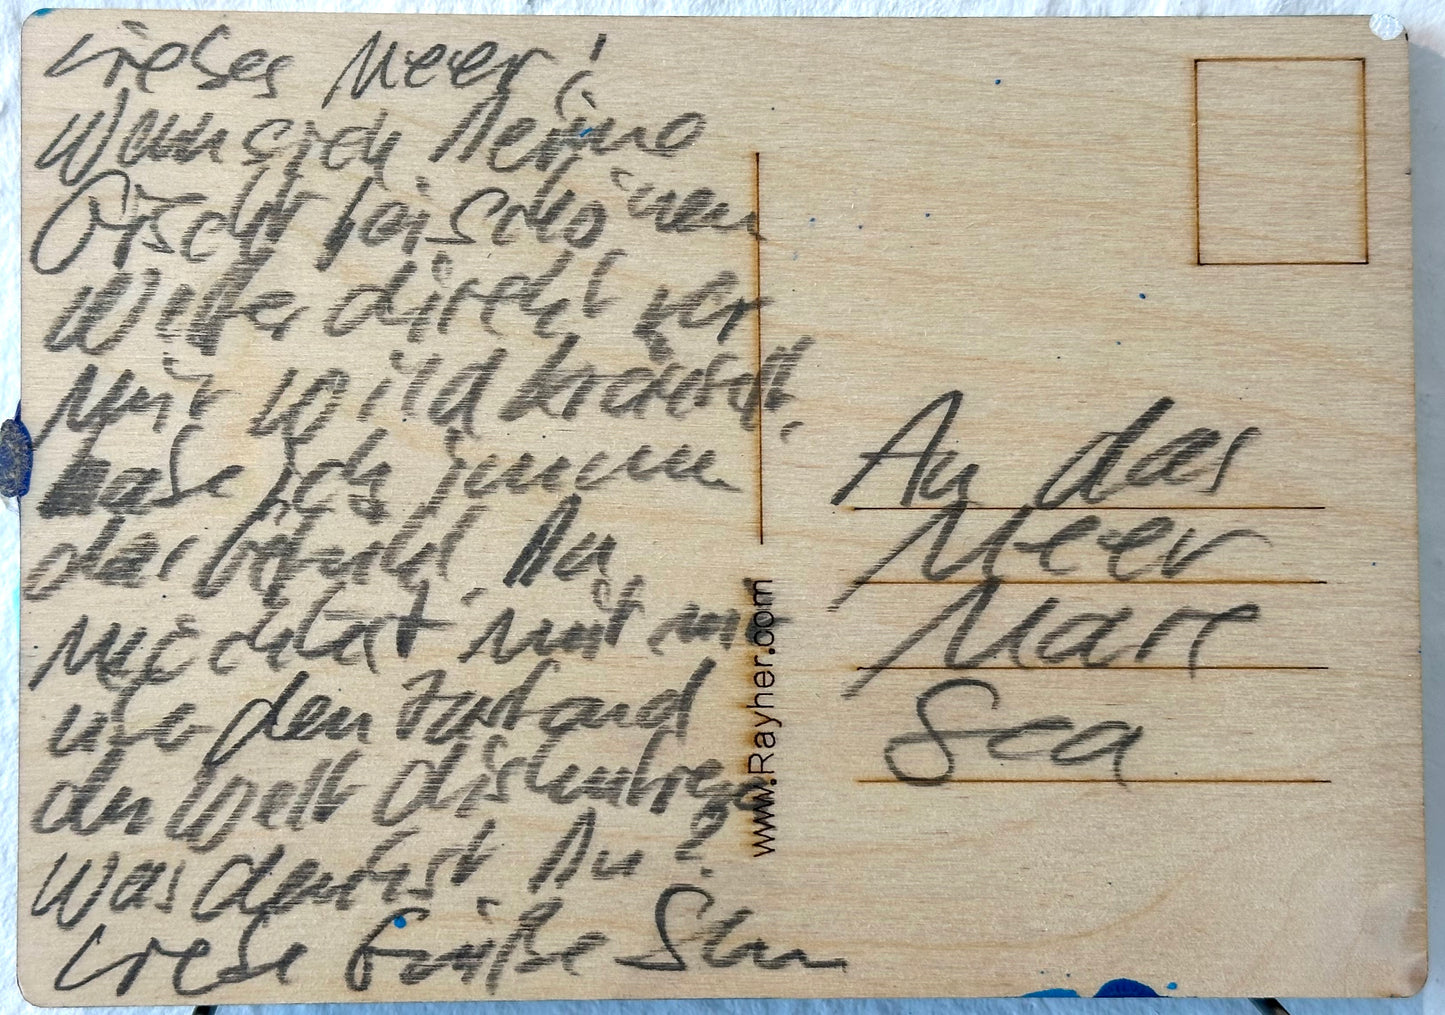 Liebes Meer!
Wenn sich Deine
Gischt bei schönem
Wetter direkt vor
mir wild kräuselt,
habe ich immer
das Gefühl, Du
möchtest mit mir
über den Zustand
der Welt diskutieren
Was denkst Du?
Liebe Grüße
An das
Meer
Mare
Sea
www.Rayher.com